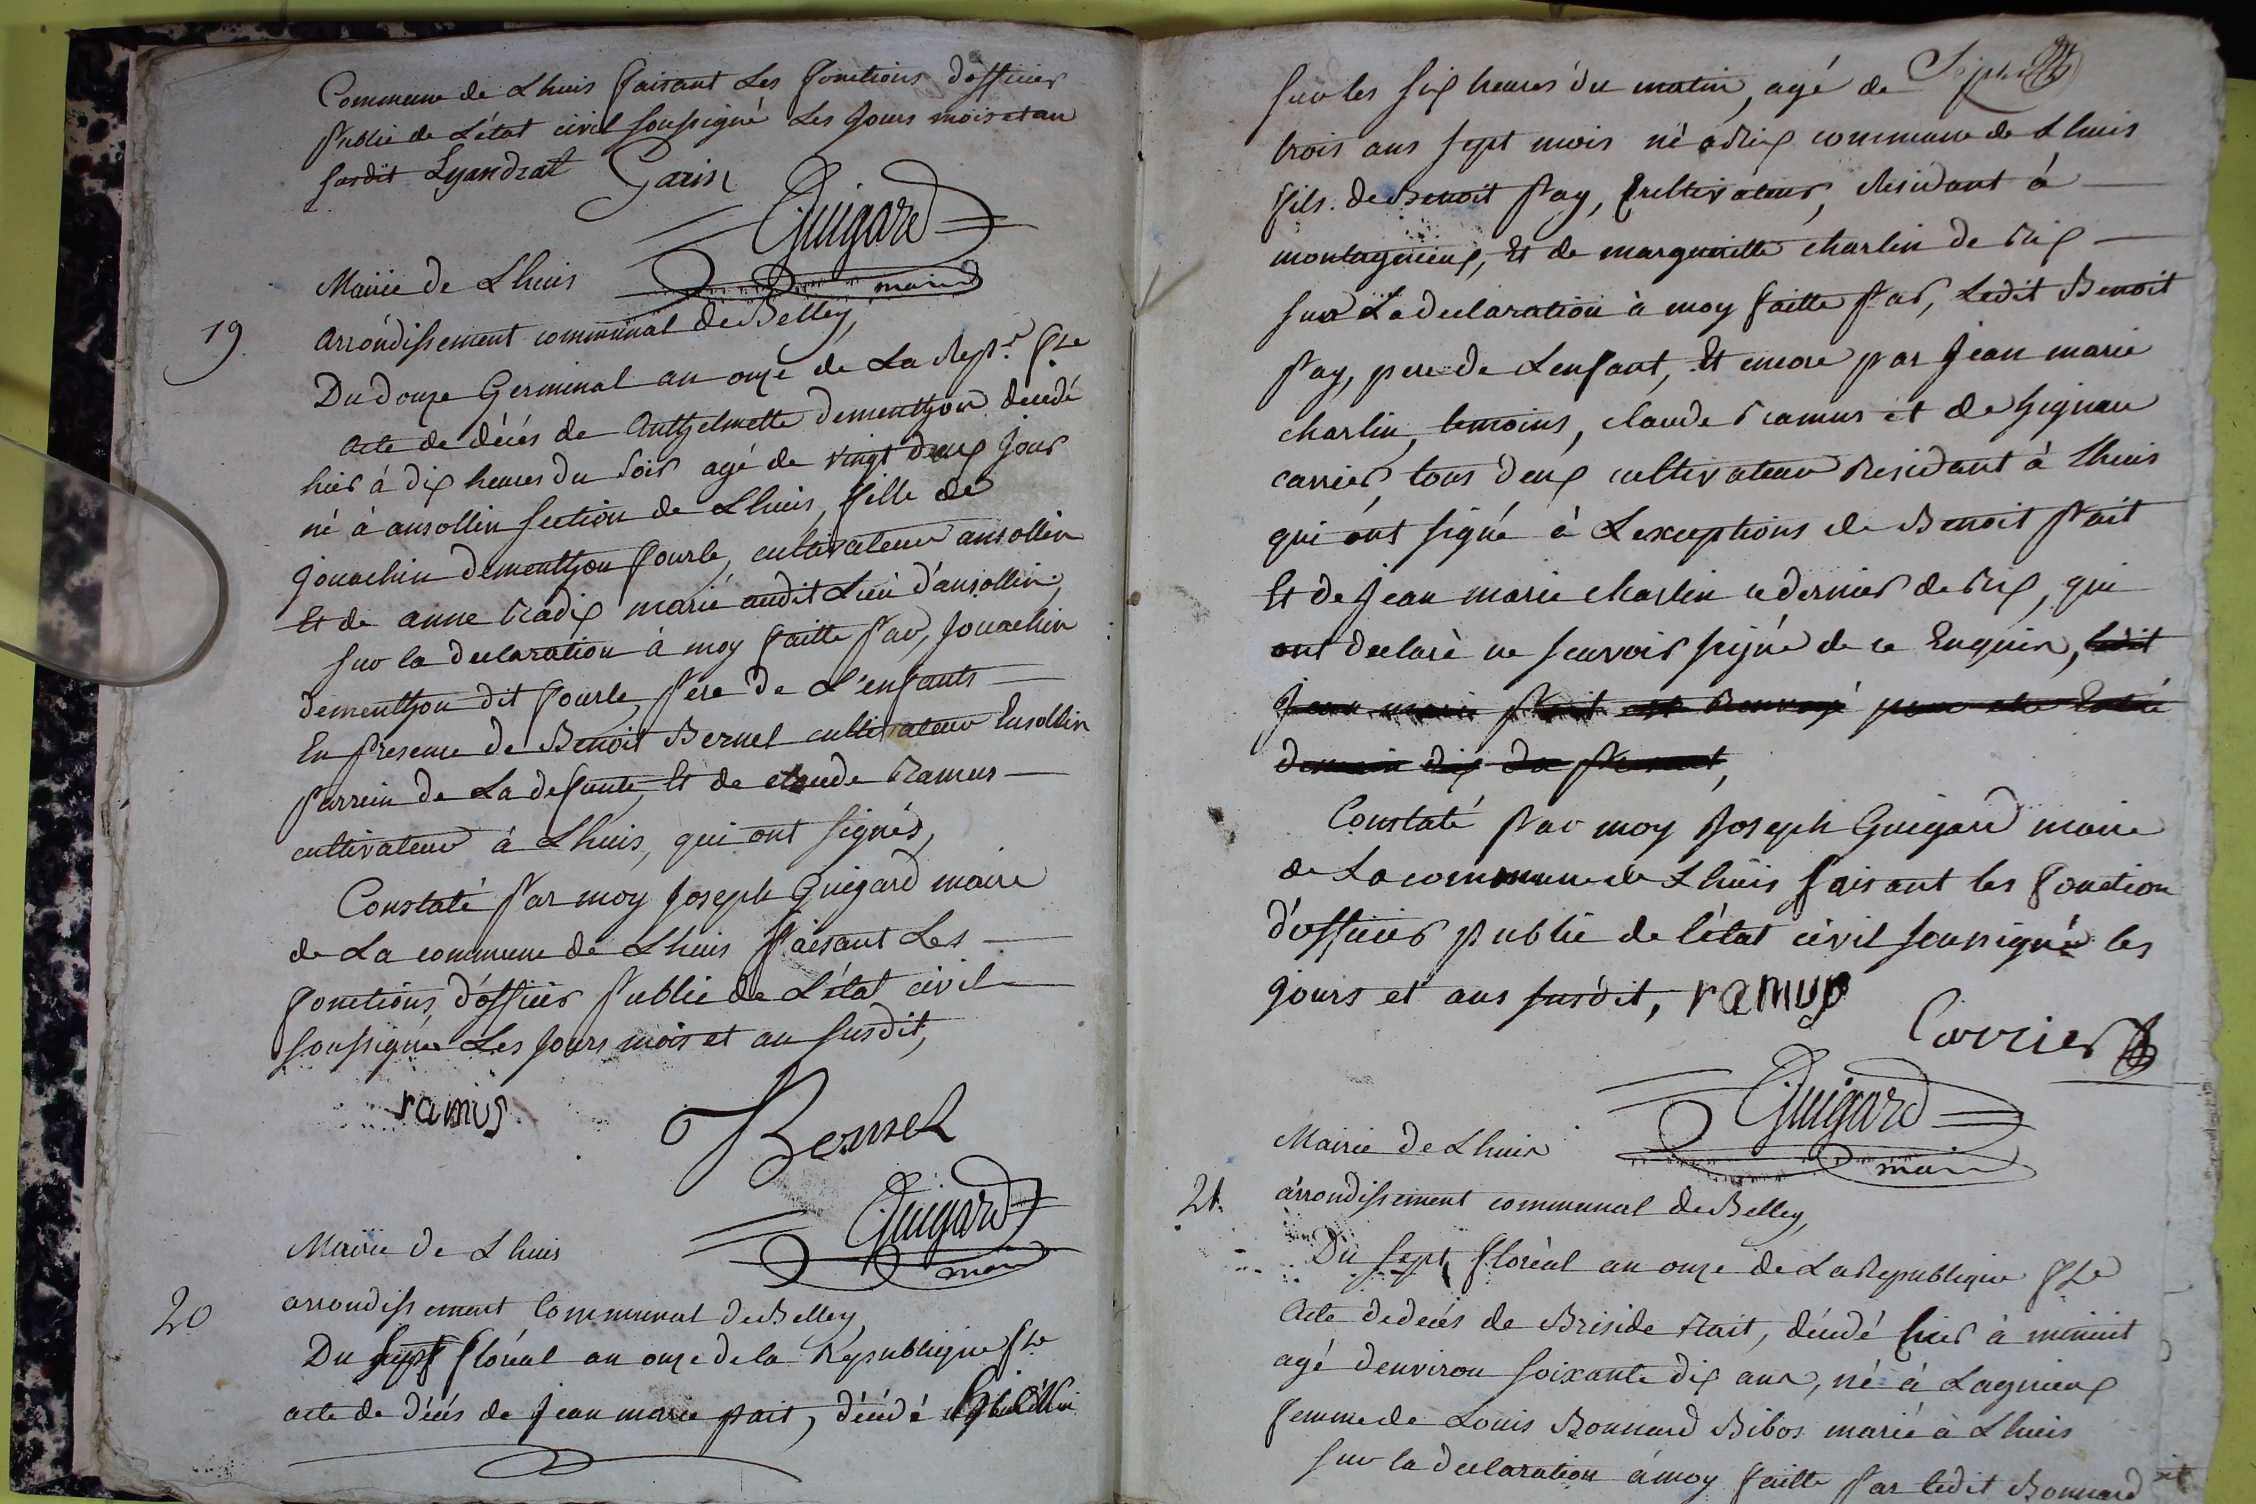 Commune de Lhuis faisant Les fonctions d'officier
Public de L'état civil soussigné Les Jours mois et an
susdit Lyandrat Garin
Guigard
maire
Mairie de Lhuis
19.
arrondissement communal de Belley,
Du douze Germinal an onze de La Rep.e fse
acte de décés de Anthelmette dementhon decedé
hier à dix heures du soir agé de vingt deux jour
né à ansollin section de Lhuis, fille de
jouachin dementhon fourle, cultivateur ansollin
Et de anne Radix marié audit Lieu d'ansollin,
sur la declaration à moy faitte Par, Jouachin
dementhon dit fourle, Pere de L'enfants
En Presence de Benoit Bernel cultivateur Ensollin
Parrein de La defunte, Et de claude Ramus
cultivateur à Lhuis, qui ont signés,
Constaté Par moy Joseph Guigard maire
de La commune de Lhuis faisant Les
fonctions, d'officier Public de L'état civil
soussigné Les Jours mois et an susdit,
ramus
Bernel
Guigard
maire
Mairie de Lhuis
20
arrondissement Communal de Belley,
Du sept floréal an onze de la Republique fse
acte de décés de Jean marie pait, décédé
sur les six heures du matin, agé de
trois ans sept mois né à Rix commune de Lhuis
fils. de Benoit Pay, Cultivateur, Residant à
montagnieux, Et de margueritte charlin de Rix
sur La declaration à moy faitte Par, Ledit Benoit
Pay, pere de Lenfant, Et encore par Jean marie
charlin, temoins, claude Ramus et de
carrier, tous deux cultivateur Residant à Lhuis
qui ont signé à Lexceptions de Benoit Pait
Et de Jean marie charlin ce dernier de Rix, qui
ont declaré ne scavoir signé de ce Enquir, ledit
Jean marie Pait est Renvoyé pour etre
demain dix du Present,
Constaté Par moy Joseph Guigard maire
de La commune de Lhuis faisant les fonction
d'officier public de l'état civil soussigné les
jours et ans susdit, ramus
Carrier
Guigard
maire
Mairie de Lhuis
21.
arrondissement communal de Belley,
Du sept floréal an onze de La Republique fse
Acte de decés de Briside Rait, décédé hier à minuit
agé denviron soixante dix ans, né à Lagnieux
femme de Louis Bonnard Bibos marié à Lhuis
sur la declaration à moy faitte Par ledit Bonnard